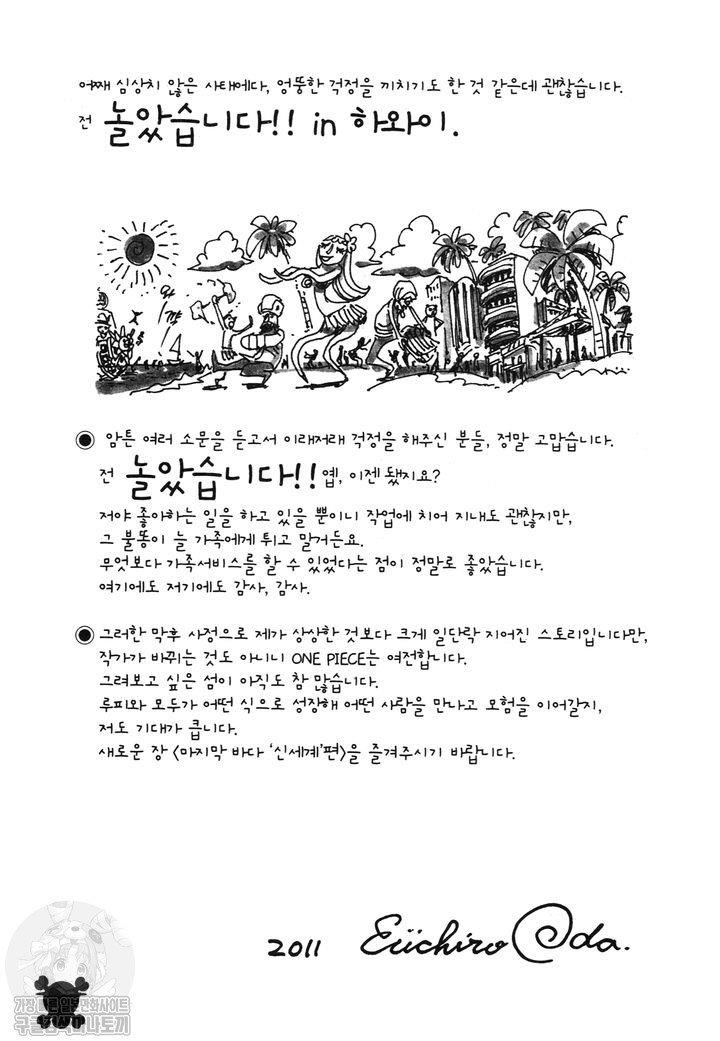 어째 심상치 않은 사태에다, 엉뚱한 걱정을 끼치기도 한 것 같은데 괜찮습니다.
전 놀았습니다!! in 하와이.
암튼 여러 소문을 듣고서 이래저래 걱정을 해주신 분들, 정말 고맙습니다.
전 놀았습니다!! 옙, 이젠 됐지요?
저야 좋아하는 일을 하고 있을 뿐이니 작업에 치어 지내도 괜찮지만,
그 불똥이 늘 가족에게 튀고 말거든요.
무엇보다 가족서비스를 할 수 있었다는 점이 정말로 좋았습니다.
여기에도 저기에도 감사, 감사.
그러한 막후 사정으로 제가 상상한 것보다 크게 일단락 지어진 스토리입니다만,
작가가 바뀌는 것도 아니니 ONE PIECE는 여전합니다.
그려보고 싶은 섬이 아직도 참 많습니다.
루피와 모두가 어떤 식으로 성장해 어떤 사람을 만나고 모험을 이어갈지,
저도 기대가 큽니다.
새로운 장 〈마지막 바다 '신세계'편〉을 즐겨주시기 바랍니다.
2011 Eiichiro Oda.